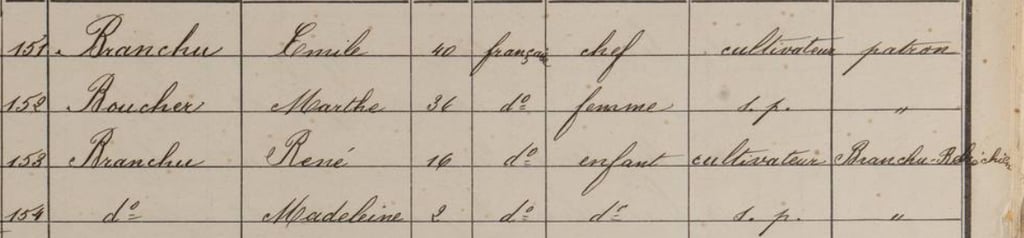 151 Branchu Emile 40 français chef cultivateur patron
152 Boucher Marthe 36 do femme s. p. "
153 Branchu René 16 do enfant cultivateur Branchu
154 do Madeleine 2 do do s. p. "